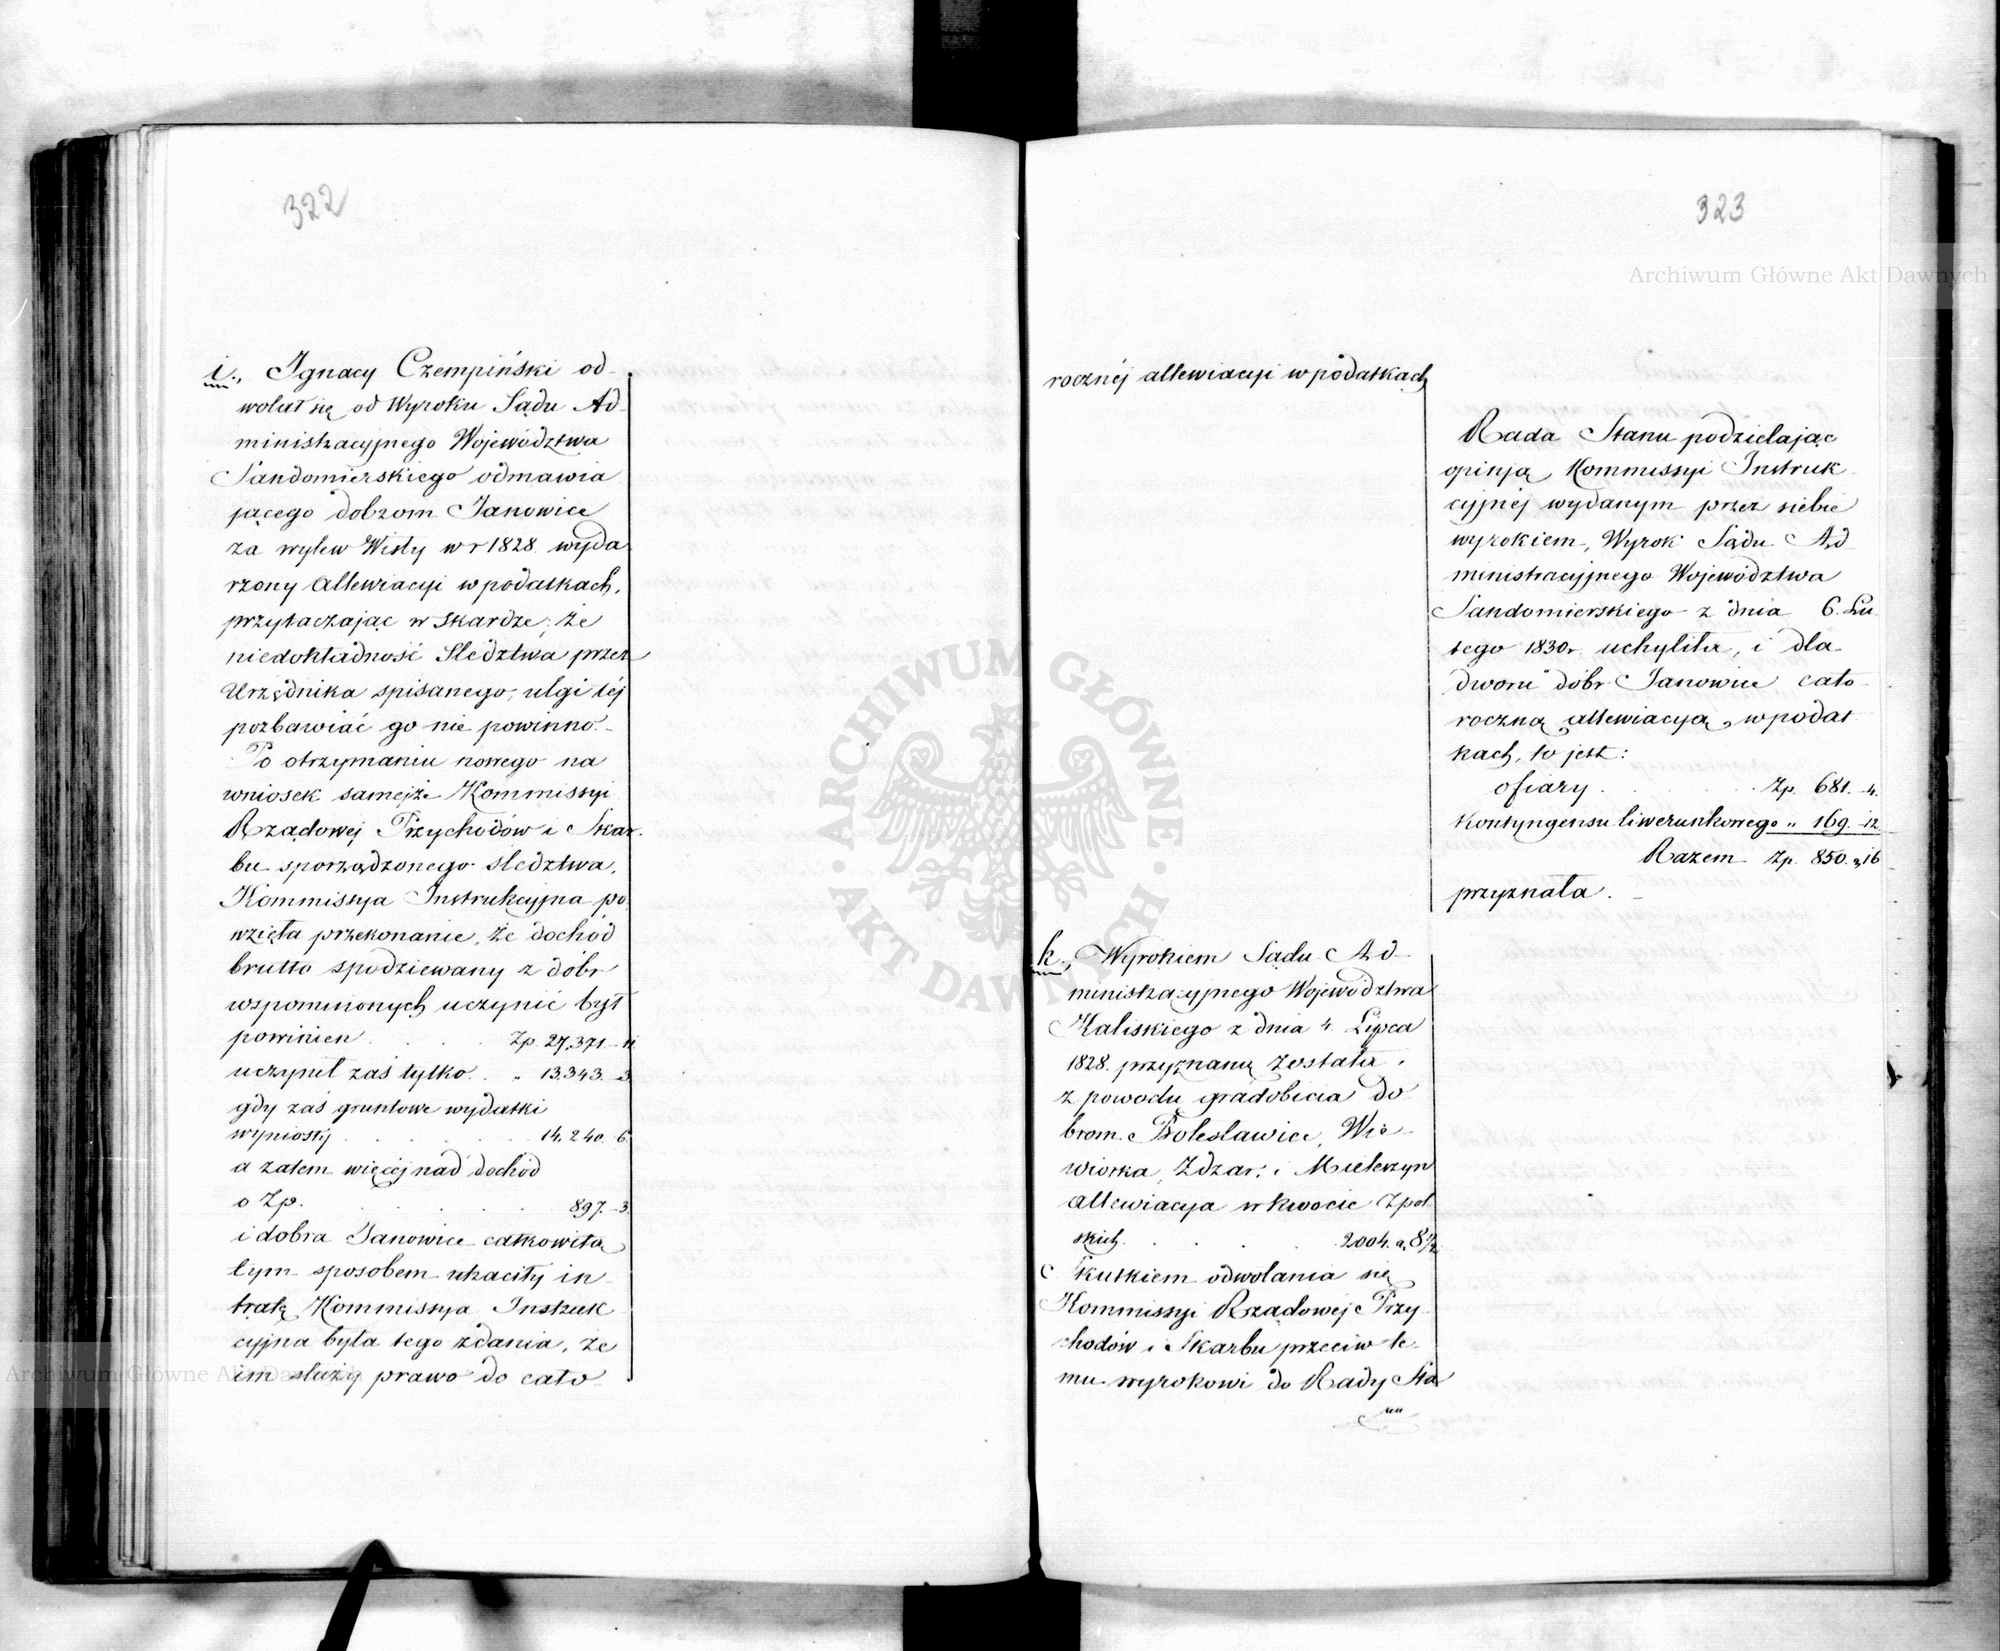 322
i., Ignacy Czempiński od-
wołał się od Wyroku Sądu Ad-
ministracyjnego Województwa
Sandomierskiego odmawia
jącego dobrom Janowice
za wylew Wisły w r 1828 wyda
rzony allewiacyi w podatkach,
przytaczając w skardze; że
niedokładność śledztwa przez
Urzędnika spisanego, ulgi téj
pozbawiać go nie powinno.-
Po otrzymaniu nowego na
wniosek samejże Kommissyi
Rządowej Przychodów i Skar.
bu sporządzonego śledztwa,
Kommissya Instrukcyjna po
wzięła przekonanie, że dochód
brutto spodziewany z dóbr
wspomnionych uczynić był
powinien . . . . Zp. 27,371.-11
uczynił zaś tylko . „ 13,343.-3.
gdy zaś gruntowe wydatki
wyniosły . . . . 14,240.-6.
a zatem więcéj nad dochód
o Zp. . . . . . 897.-3.
i dobra Janowice całkowitą
tym sposobem utraciły in-
tratę Kommissya Instruk
cyjna była tego zdania, że
im służy prawo do cało
323
rocznéj allewiacyi w podatkach
Rada Stanu podzielając
opinją Kommissyi Instruk-
cyjnéj wydanym przez siebie
wyrokiem, Wyrok Sądu Ad
ministracyjnego Województwa
Sandomierskiego z dnia 6. Lu
tego 1830 r. uchyliła, i dla
dworu dóbr Janowice cało
roczną allewiacyą, w podat
kach, to jest:
ofiary . . . . Zp. 681.-4.
Kontyngensu liwerunkowego „ 169.-12
Razem Zp. 850. „ 16
przyznała.-
k., Wyrokiem Sądu Ad-
ministracyjnego Województwa
Kaliskiego z dnia 4. Lipca
1828. przyznaną została,
z powodu gradobicia do
brom Bolesławice, Wie-
wiorka, Zdzar, i Mieleszyn
allewiacya w kwocie Zpol
skich . . . 2004. „ 8½
Skutkiem odwołania się
Kommissyi Rządowéj Przy-
chodów i Skarbu przeciw te-
mu wyrokowi do Rady Sta
nu
ARCHIWUM GŁÓWNE · AKT DAWNYCH ·
Archiwum Główne Akt Dawnych
Archiwum Główne Akt Dawnych